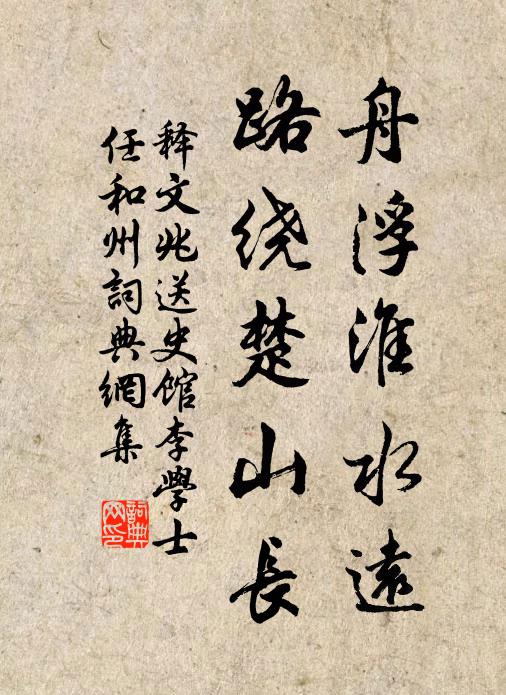 舟浮淮水遠
路绕楚山長
释文兆送史館李學士
任和州詞典網集
詞典網印